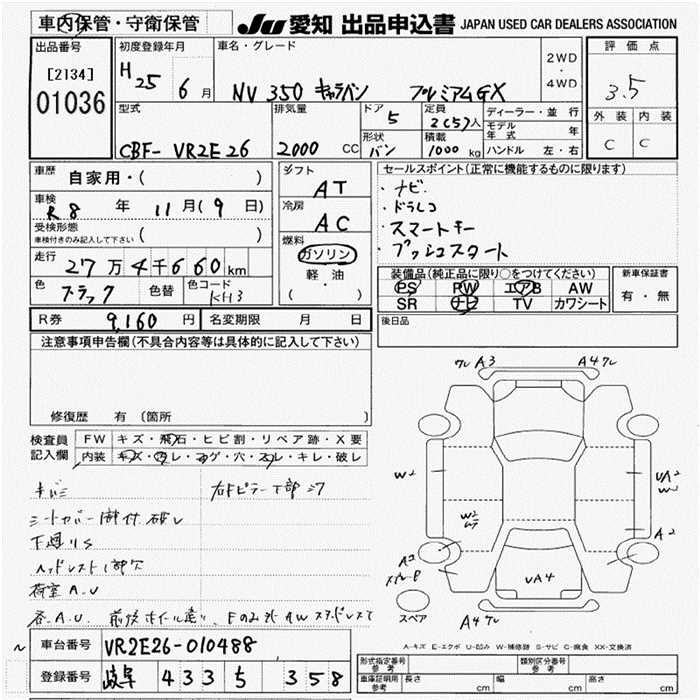 車内保管・守衛保管
JU 愛知 出品申込書 JAPAN USED CAR DEALERS ASSOCIATION
出品番号
[2134]
01036
初度登録年月
H 25 6 月
車名・グレード
NV 350 キャラバン プレミアムGX
2WD
・
4WD
評価点
3.5
外装 内装
C C
型式
CBF- VR2E26
排気量
2000 CC
ドア 5
形状 バン
定員 2(5)人
積載 1000 kg
ディーラー・並行
モデル年式 年
ハンドル 左・右
車歴
自家用・( )
車検
R8 年 11 月(9 日)
受検形態
車検付きのみ記入して下さい ( )
走行
27万4千660km
色 ブラック 色替 色コード KH3
シフト
AT
冷房
AC
燃料
ガソリン
・
軽油
( )
セールスポイント(正常に機能するものに限ります)
・ナビ
・ドラレコ
・スマートキー
・プッシュスタート
装備品(純正品に限り○をつけてください)
PS PW エアB AW
SR ナビ TV カワシート
新車保証書
有・無
R券 9,160 円 名変期限 月 日
後日品
注意事項申告欄(不具合内容等は具体的に記入して下さい)
修復歴 有(箇所
検査員記入欄
FW キズ・飛石・ヒビ割・リペア跡・X要
内装 キズ・汚レ・コゲ・穴・スレ・キレ・破レ
シートカバー
下廻りS
ヘッドレスト1部欠
荷室A.U
各A.U.
ワレ A3
A4ワレ
W2
W2
UA2
A2
UA4
スペア
A4ワレ
A-キズ E-エクボ U-凹み W-補修跡 S-サビ C-腐食 XX-交換済
車台番号 VR2E26-010488
登録番号 岐阜 433 5 358
形式指定番号
参考
類別区分番号
参考
車庫証明用
参考
長さ cm 幅 cm 高さ cm